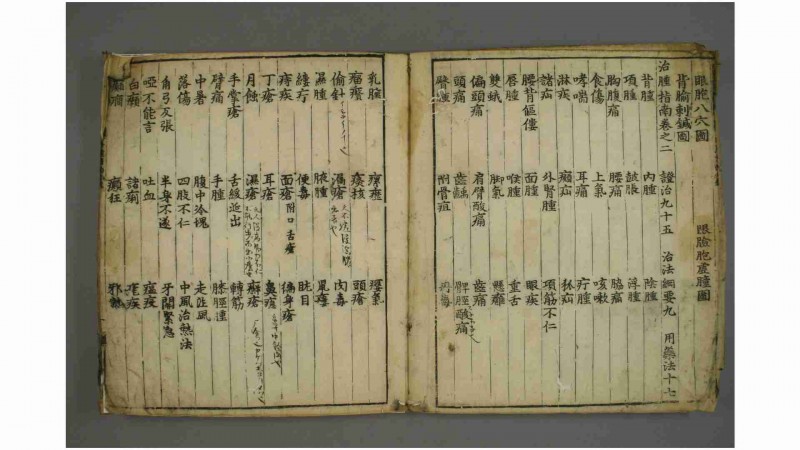 眼胞八穴圖 眼臉胞虛腫圖
背腧刺鍼圖
治腫指南卷之二 證治九十五 治法綱要九 用藥法十七
背腫 內腫 陰腫
項腫 鼓脹 浮腫
胸腹痛 腰痛 脇痛
食傷 上氣 咳嗽
哮喘 耳痛 疔腫
淋疾 㿗疝 狐疝
諸疝 外腎腫 項筋不仁
腰背傴僂 面腫 眼疾
唇腫 喉腫 重舌
雙蛾 脚氣 懸癰
偏頭痛 肩臂酸痛 齒痛
頭痛 齒齲 脾脛酸痛
臀腫 附骨疽 丹毒
乳腫
瘤瘡 痰核 頭瘡
偷針 漏瘡 內毒
濕腫 腋腫
痔疾 便毒 眩目
丁瘡 面瘡 附口舌瘡 遍身瘡
月蝕 耳瘡 鼻瘡
手掌瘡 濕瘡 癬瘡
臂痛 舌緩涎出 轉筋
中暑 手腫 膝脛
落傷 腹中冷塊 走注風
角弓反張 四肢不仁 中風治熱法
啞不能言 半身不遂 牙關緊急
白癩 吐血 瘟疫
諸痢 瘧疾
癲狂